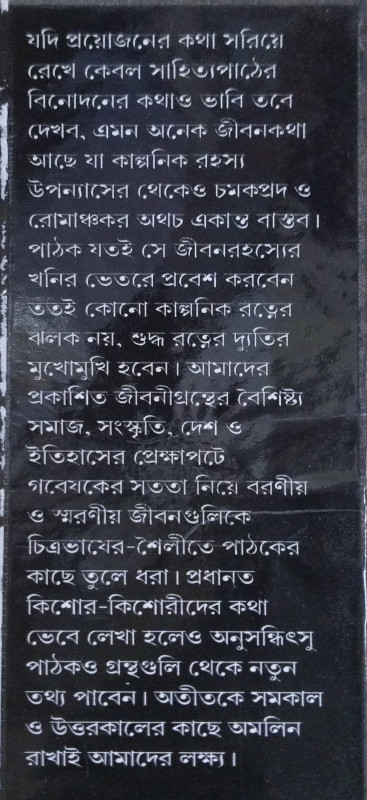 যদি প্রয়োজনের কথা সরিয়ে
রেখে কেবল সাহিত্যপাঠের
বিনোদনের কথাও ভাবি তবে
দেখব, এমন অনেক জীবনকথা
আছে যা কাল্পনিক রহস্য
উপন্যাসের থেকেও চমকপ্রদ ও
রোমাঞ্চকর অথচ একান্ত বাস্তব।
পাঠক যতই সে জীবনরহস্যের
খনির ভেতরে প্রবেশ করবেন
ততই কোনো কাল্পনিক রত্নের
ঝলক নয়, শুদ্ধ রত্নের দ্যুতির
মুখোমুখি হবেন। আমাদের
প্রকাশিত জীবনীগ্রন্থের বৈশিষ্ট্য
সমাজ, সংস্কৃতি, দেশ ও
ইতিহাসের প্রেক্ষাপটে
গবেষকের সততা নিয়ে বরণীয়
ও স্মরণীয় জীবনগুলিকে
চিত্রভাষের-শৈলীতে পাঠকের
কাছে তুলে ধরা। প্রধানত
কিশোর-কিশোরীদের কথা
ভেবে লেখা হলেও অনুসন্ধিৎসু
পাঠকও গ্রন্থগুলি থেকে নতুন
তথ্য পাবেন। অতীতকে সমকাল
ও উত্তরকালের কাছে অমলিন
রাখাই আমাদের লক্ষ্য।